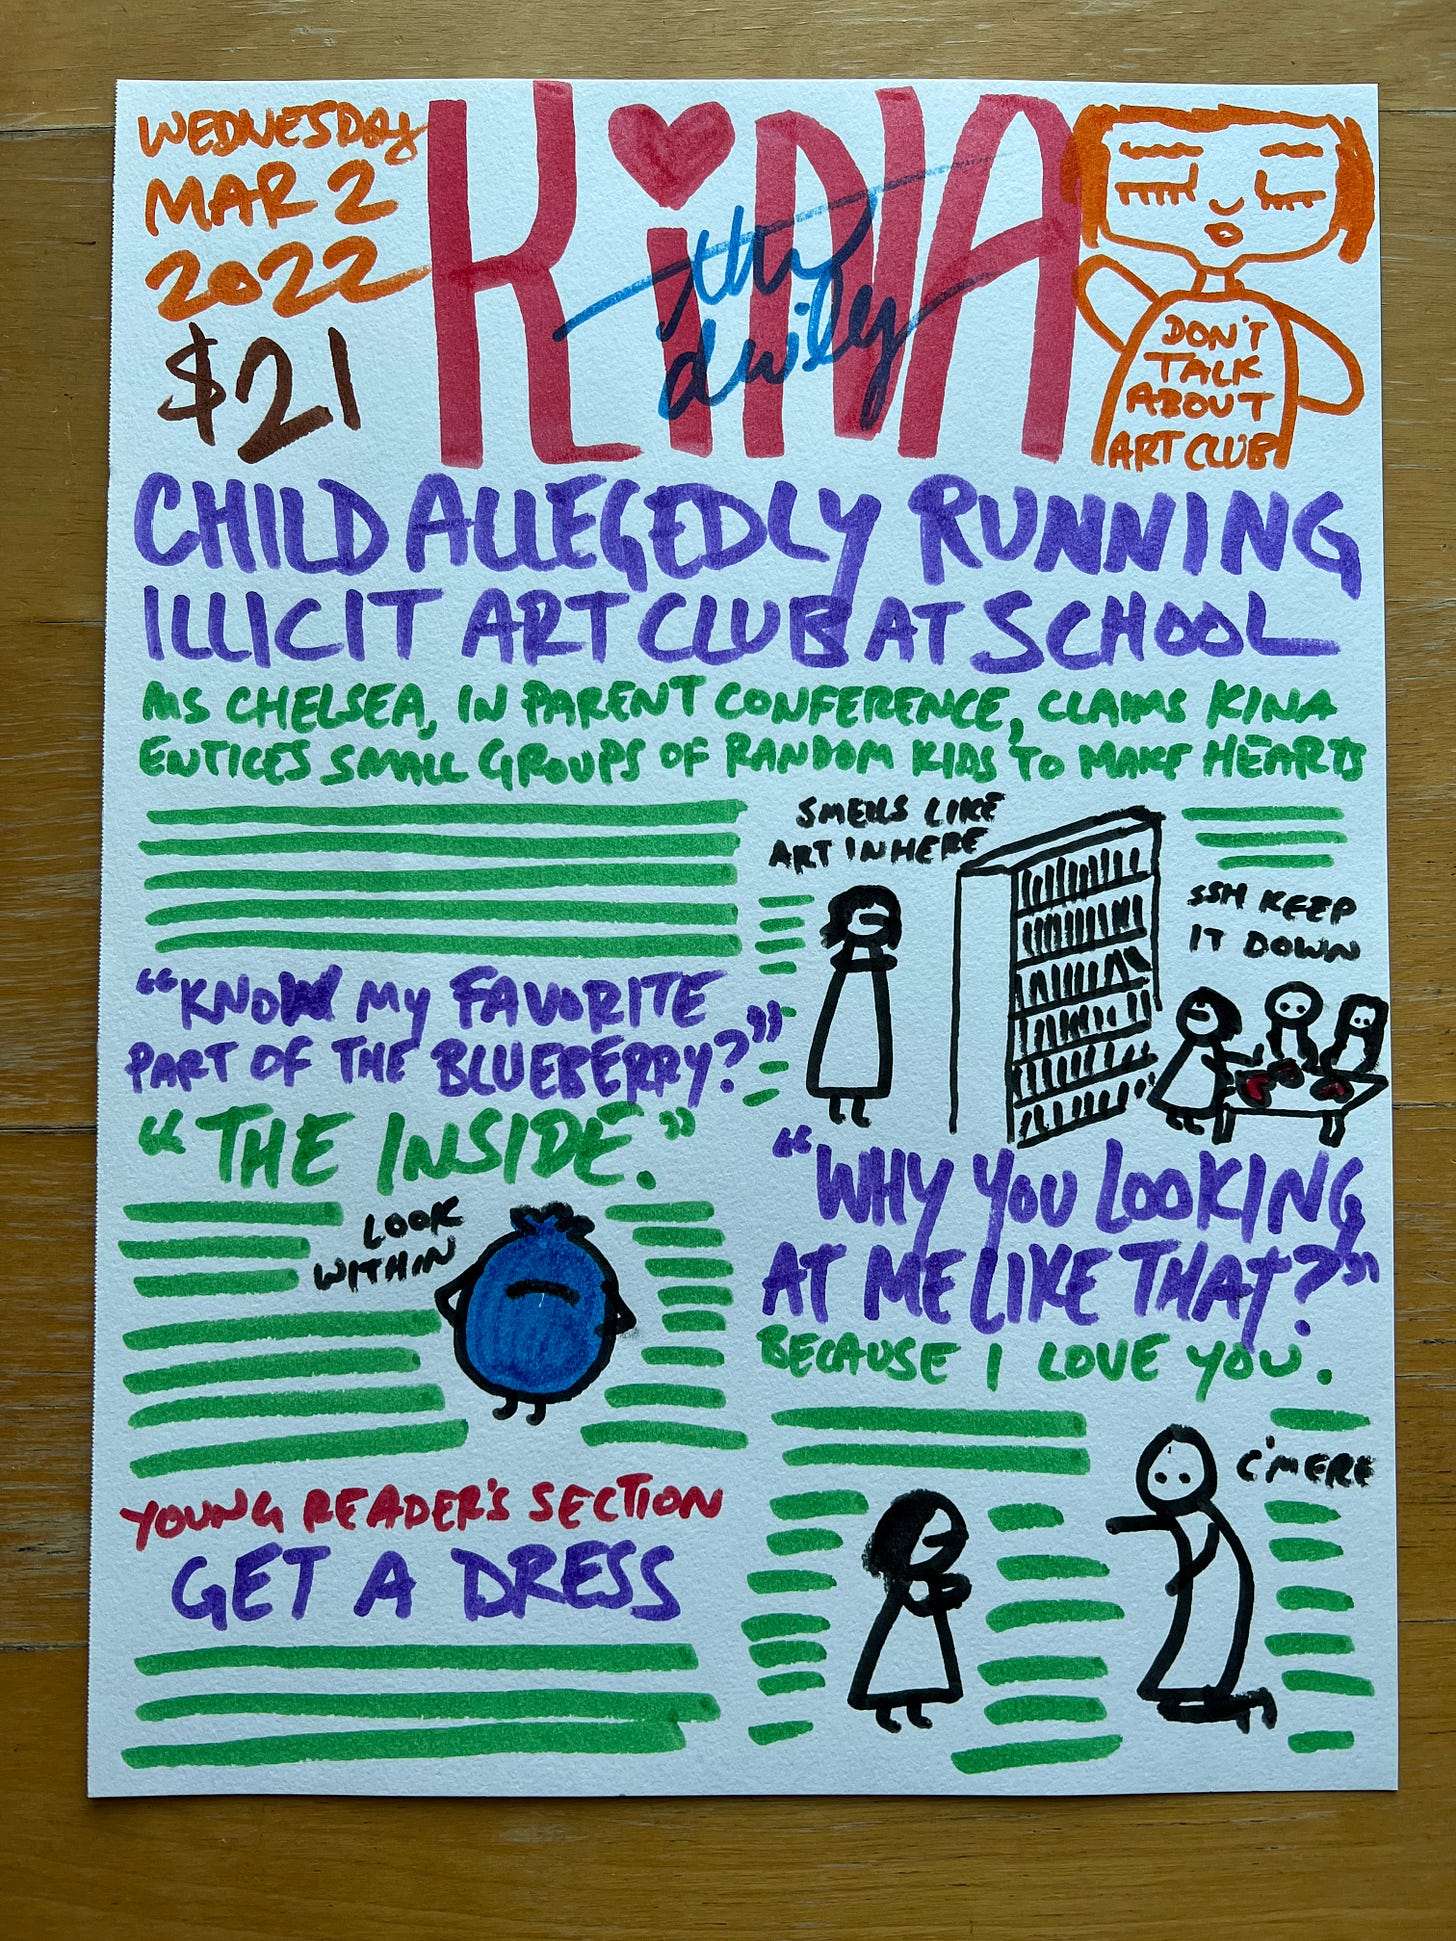 WEDNESDAY
MAR 2
2022
$21
KINA
the
daily
DON'T
TALK
ABOUT
ART CLUB
CHILD ALLEGEDLY RUNNING
ILLICIT ART CLUB AT SCHOOL
MS CHELSEA, IN PARENT CONFERENCE, CLAIMS KINA
ENTICES SMALL GROUPS OF RANDOM KIDS TO MAKE HEARTS
SMELLS LIKE
ART IN HERE
SSH KEEP
IT DOWN
"KNOW MY FAVORITE
PART OF THE BLUEBERRY?"
"THE INSIDE."
LOOK
WITHIN
"WHY YOU LOOKING
AT ME LIKE THAT?"
BECAUSE I LOVE YOU.
C'MERE
YOUNG READER'S SECTION
GET A DRESS